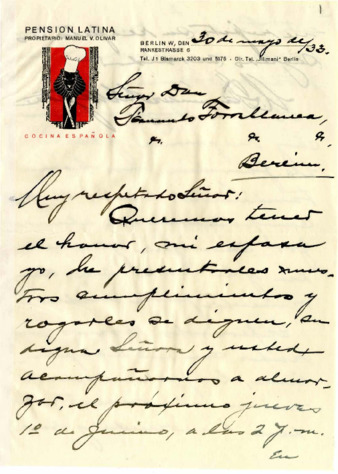 1
PENSION LATINA
PROPIETARIO: MANUEL V. OLIVAR
COCINA ESPAÑOLA
BERLIN W, DEN 30 de mayo de /33.
RANKESTRASSE 6
Tel. J1 Bismarck 3203 und 5175 - Dir. Tel. „Rimani" Berlin
Señor Don
Fernando Torreblanca,
" " "
Berlin.
Muy respetado Señor:
Queremos tener
el honor, mi esposa y
yo, de presentarles nues-
tros cumplimientos y
rogarles se dignen, su
digna Señora y usted,
acompañarnos a almor-
zar, el próximo jueves
1º de Junio, a las 2 p.m.
En